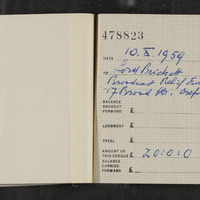 478823
DATE 10.X.1959
TO Lord Birkett
Broadcast Relief
17 Broad St.
BALANCE
BROUGHT
FORWARD £
LODGMENT £
TOTAL £
AMOUNT OF
THIS CHEQUE £ 20:0:0
BALANCE
CARRIED
FORWARD £